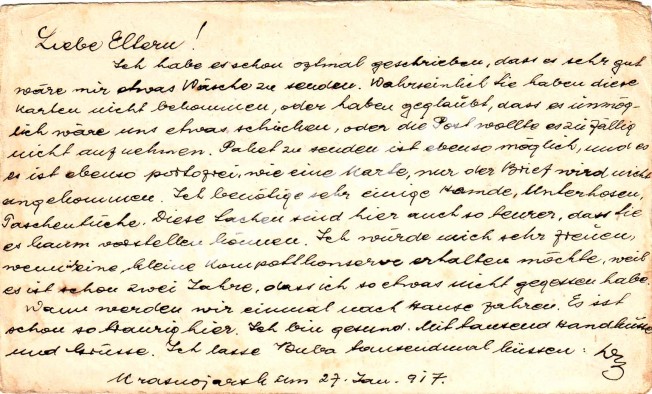 Liebe Eltern!
Ich habe es schon oftmal geschrieben, dass es sehr gut
wäre mir etwas Wäsche zu senden. Wahrseinlich Sie haben diese
Karten nicht bekommen, oder haben geglaubt, dass es unmög-
lich wäre uns etwas schicken, oder die Post wollte es zufällig
nicht aufnehmen. Paket zu senden ist ebenso möglich, und es
es ist ebenso portofrei, wie eine Karte, nur der Brief wird nicht
angekommen. Ich benötige sehr einige Hemde, Unterhosen,
Taschentüche. Diese Sachen sind hier auch so teurer, dass Sie
es kaum vorstellen können. Ich würde mich sehr freuen,
wenn eine kleine Kompottkonserve erhalten möchte, weil
es ist schon zwei Jahre, dass ich so etwas nicht gegessen habe.
Wann werden wir einmal nach Hause fahren. Es ist
schon so traurig hier. Ich bin gesund. Mit tausend Handküsse
und Grüsse. Ich lasse Buba tausendmal küssen:
Krasnojarsk am 27. Jan. 917.